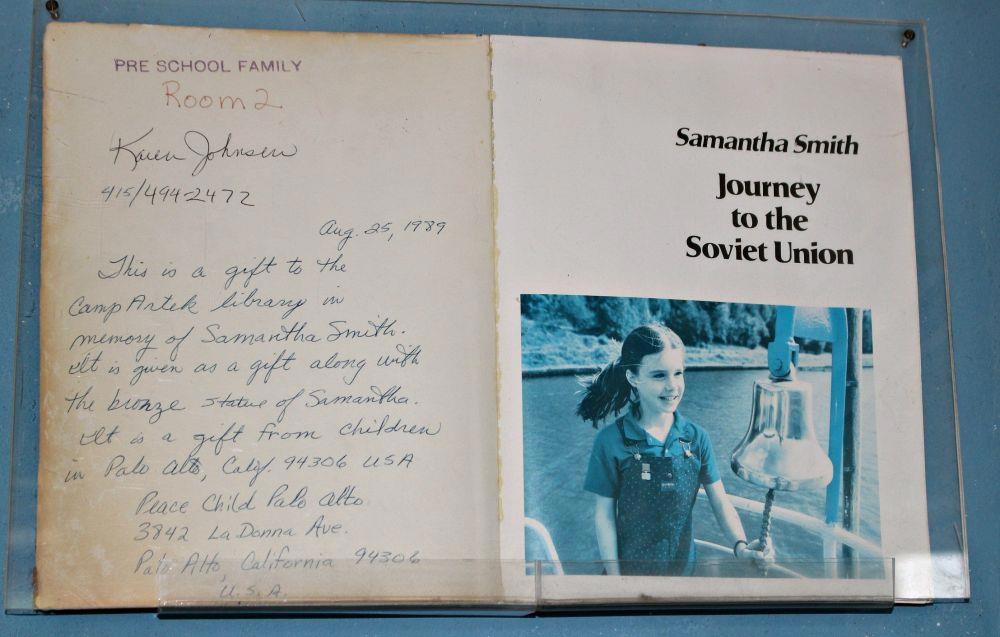 PRE SCHOOL FAMILY
Room 2
Karen Johnsen
415/494-2472
Aug. 25, 1989
This is a gift to the
Camp Artek library in
memory of Samantha Smith.
It is given as a gift along with
the bronze statue of Samantha.
It is a gift from children
in Palo Alto, Calif. 94306 USA
Peace Child Palo Alto
3842 La Donna Ave.
Palo Alto, California 94306
U.S.A.
Samantha Smith
Journey
to the
Soviet Union